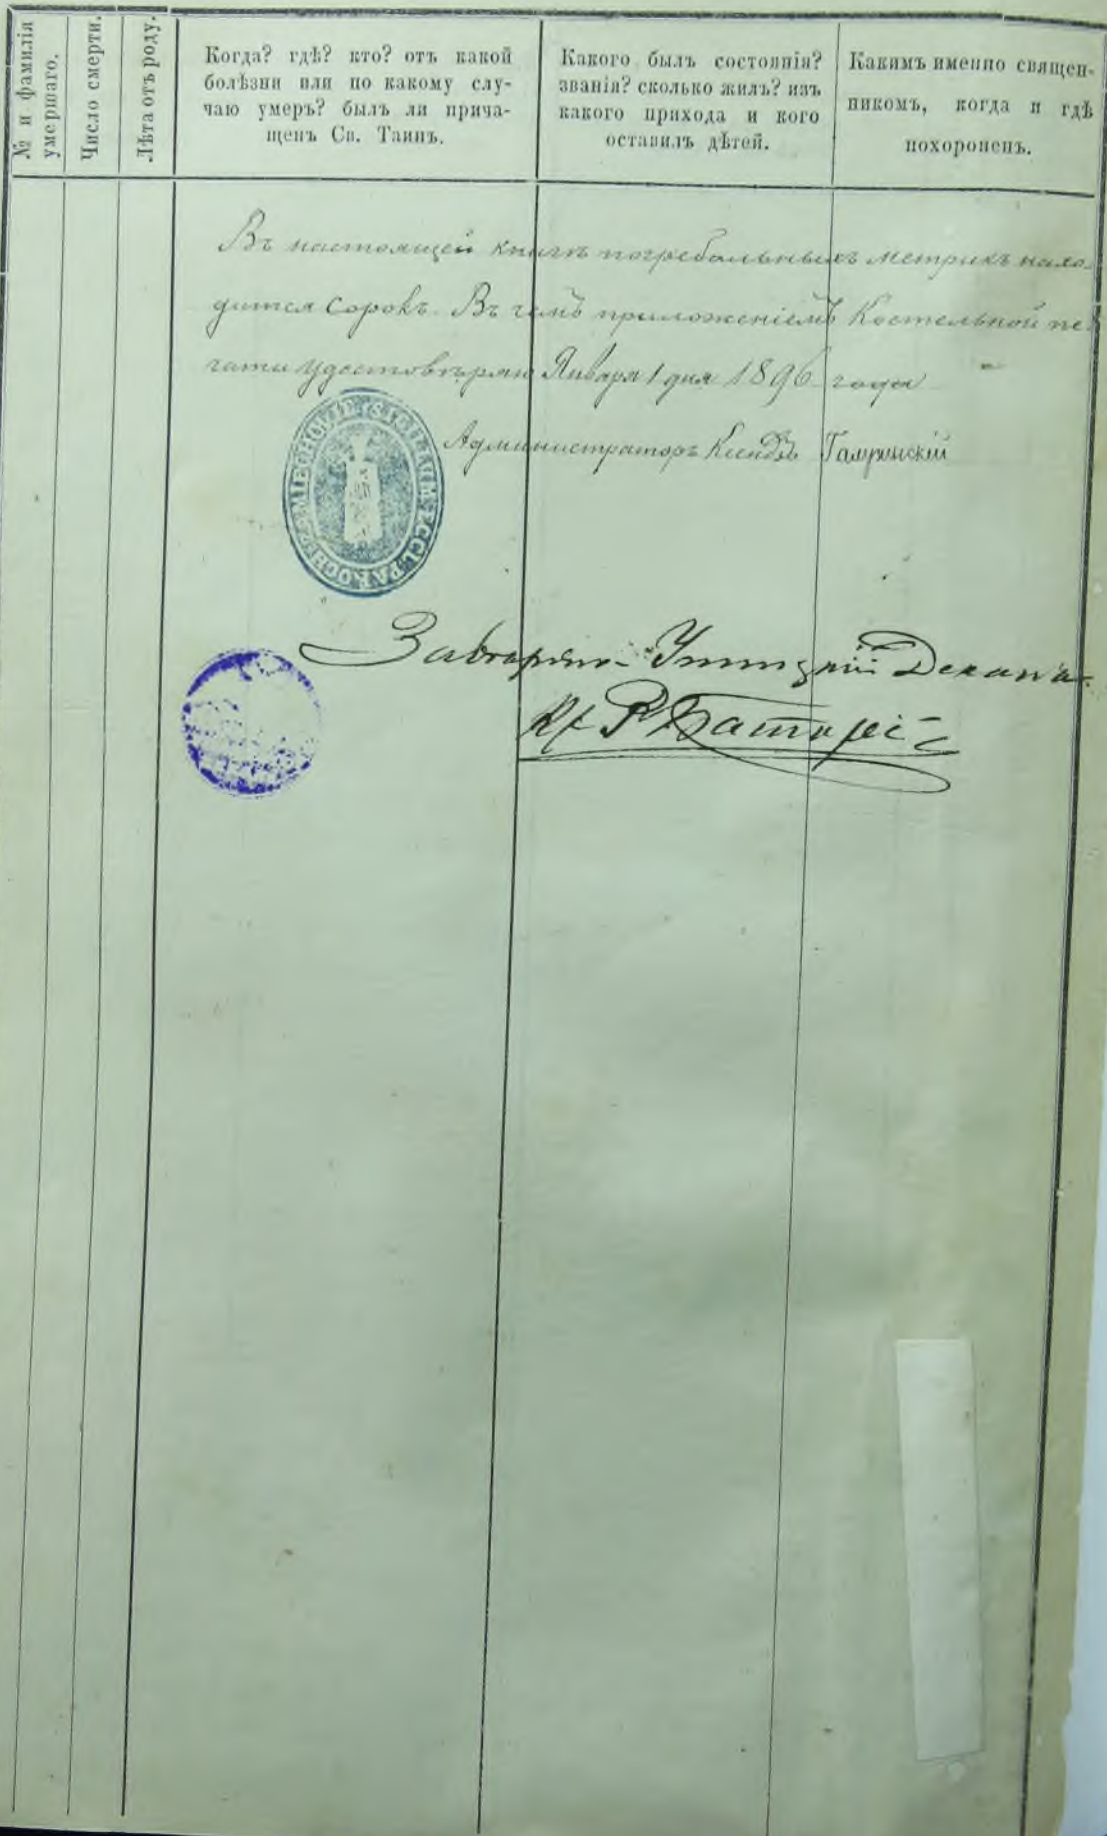 № и фамилія
умершаго.
Число смерти.
Лѣта отъ роду.
Когда? гдѣ? кто? отъ какой
болѣзни или по какому слу-
чаю умеръ? былъ ли прича-
щенъ Св. Таинъ.
Какого былъ состоянія?
званія? сколько жилъ? изъ
какого прихода и кого
оставилъ дѣтей.
Какимъ именно священ-
никомъ, когда и гдѣ
похороненъ.
Въ настоящей книгѣ погребальныхъ метрикъ нахо-
дится сорокъ. Въ чемъ приложеніемъ Костельной пе-
чати удостовѣряю Января 1 дня 1896 года
Администраторъ Ксендзъ
Ушицкій Декана